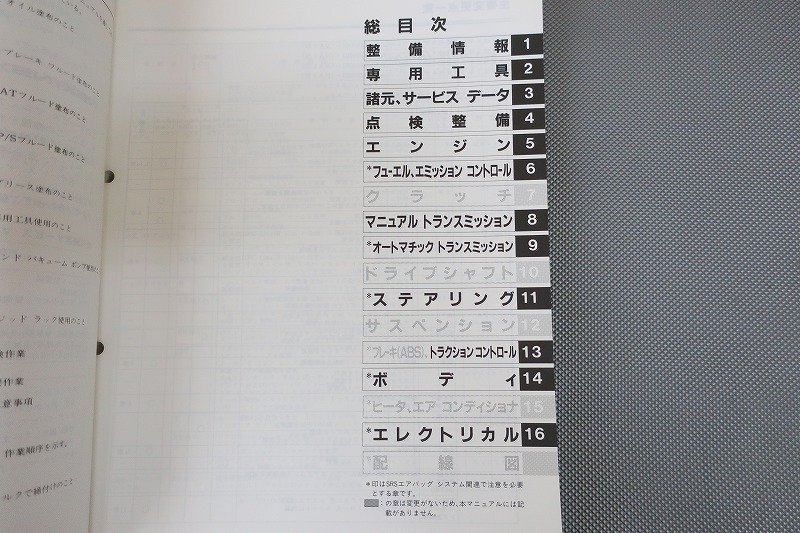 オイル塗布のこと
ブレーキ フルード塗布のこと
ATフルード塗布のこと
P/Sフルード塗布のこと
グリース塗布のこと
用工具使用のこと
ッド ラック使用のこと
作業
意事項
作業順序を示す。
ルクで締付けのこと
総目次
整備情報 1
専用工具 2
諸元、サービス データ 3
点検整備 4
エンジン 5
*フューエル、エミッション コントロール 6
クラッチ 7
マニュアル トランスミッション 8
*オートマチック トランスミッション 9
ドライブシャフト 10
*ステアリング 11
サスペンション 12
*ブレーキ(ABS)、トラクション コントロール 13
*ボディ 14
*ヒータ、エア コンディショナ 15
*エレクトリカル 16
*配線図
*印はSRSエアバッグ システム関連で注意を必要
とする章です。
:の章は変更がないため、本マニュアルには記
載がありません。